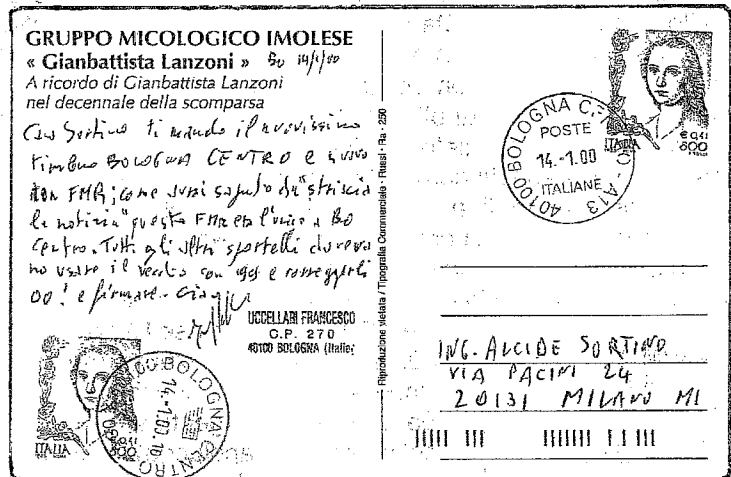 GRUPPO MICOLOGICO IMOLESE
« Gianbattista Lanzoni » Bo 14/1/00
A ricordo di Gianbattista Lanzoni
nel decennale della scomparsa
Caro Sortino ti mando il nuovissimo
timbro BOLOGNA CENTRO e nuovo
FMR; come avrai saputo da "striscia
la notizia" questo FMR era l'unico a BO
Centro. Tutti gli altri sportelli doveva
no usare il vecchio con 99 e correggerli
00! e firmare. Ciao
UCCELLARI FRANCESCO
C.P. 270
40100 BOLOGNA (Italie)
ITALIA
€ 0,41
800
40100 BOLOGNA CENTRO
14-1.00.
Riproduzione vietata / Tipografia Commerciale - Rossi - Ra - 250
ITALIA
€ 0,41
800
40100 BOLOGNA C. - A13
POSTE
14.-1.00
ITALIANE
ING. ALCIDE SORTINO
VIA PACINI 24
20131 MILANO MI